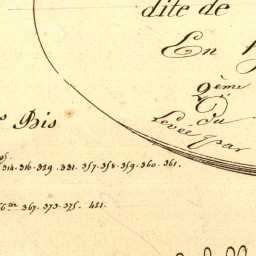 dite de
En
2ème
Du
Levée par
Bis
314. 316. 329. 331. 357. 358. 359. 360. 361.
367. 373. 375. 421.